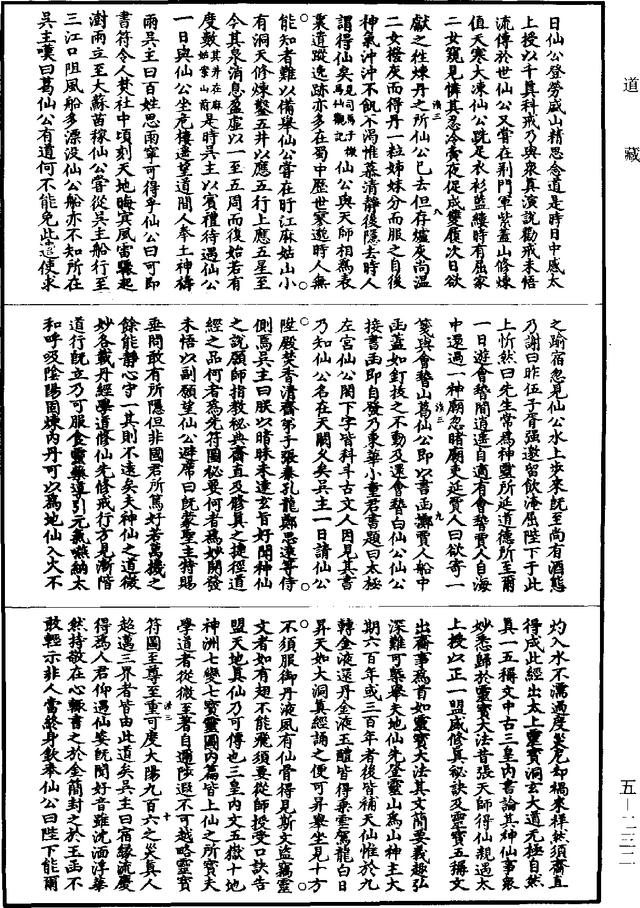 道藏
五－二三二
日仙公登勞盛山精思念道是時日中感太
上授以千真科戒乃與衆真演說勸戒未悟
流傳於世仙公又嘗在荆門軍紫蓋山修煉
值天寒大凍仙公跣足衣衫藍縷時有屈家
二女窺見憐其忍冷賫夜促成雙履次日欲
獻之徃煉丹之所仙公已去但存爐炭尚温
二女撥灰而得丹一粒姊妹分而服之自後
神氣沖沖不飢不渴惟慕清靜後隱去時人
謂得仙矣仙公與天師相為表
裏遺蹤逸跡亦多在蜀中歷世寖邈時人無
能知者難以備舉仙公嘗在盱江麻姑山小
有洞天修煉鑿五井以應五行上應五星至
今其泉消息盈虛以一至五周而復始若有
度數其井在麻姑案山前是時吳主以賓禮待遇仙公
一日與仙公坐危樓遙望道間人奉土神禱
雨吳主曰百姓思雨寧可得乎仙公曰可即
書符令人焚社中頃刻天地晦冥風雷驟起
澍雨立至大蘇苗稼仙公嘗從吳主船行至
三江口阻風船多漂沒仙公船亦不知所在
吳主嘆曰葛仙公有道何不能免此遣使求
之踰宿忽見仙公水上步來旣至尚有酒態
乃謝曰昨伍子胥强邀留飲淹屈陛下于此
上忻然曰先生常為神靈所延道德所至爾
一日遊會嵇間逍遥自適有會嵇賈人自海
中還過一神廟忽睹廟吏延賈人曰欲寄一
牋與會嵇山葛仙公即以書函擲賈人船中
函蓋如釘拔之不動及還會嵇白仙公仙公
接書函即自發乃東華小童君書題曰太極
左宮仙公閣下字皆科斗古文人因見其書
乃知仙公名在天闕久矣吳主一日請仙公
陞殿焚香清齋弟子張泰孔龍鄭思遠等侍
側焉吳主曰朕以暗昧未達玄旨好聞神仙
之說願師指教秘典齋直及修真之捷徑道
經之品何者為先符圖秘要何者為妙開發
未悟以副願望仙公避席曰旣蒙聖主特賜
垂問敢有所隱但非國君所篤好若萬機之
餘能靜心守一其則不遠矣夫神仙之道微
妙各載丹經學道修仙先修戒行方見漸階
道行旣立乃可服食靈藥導引元氣嚥納太
和呼吸陰陽固煉內丹可以為地仙入火不
灼入水不濡過度災危却禍來祥然須齋直
得成此經出太上靈寶洞玄大道无極自然
真一五稱文中古三皇內書論其神仙事衆
妙悉歸於靈寶大法昔張天師得仙親遇太
上授以正一盟威修真秘訣及靈寶五稱文
出齋事為首如靈寶大法其文簡要義趣弘
深難可槩舉夫地仙先登靈山為山神主大
期六百年或三百年者後皆補天仙惟於九
轉金液還丹金液玉醴皆得乘雲駕龍白日
昇天如大洞真經誦之便可昇舉坐見十方
不須服御丹液凤有仙骨得見斯文盗竊靈
文者如有翅不能飛須要從師授受口訣告
盟天地真仙乃可傳也三皇內文五嶽十地
神洲七變七寶靈圖內篇皆上仙之所寶夫
學道者從微至著自邇陟遐不可越略靈寶
符圖至尊至重可度大陽九百六之災真人
超邁三界者皆由此道矣吳主曰宿緣流慶
得為人君仰遇仙姿旣聞好音雖沈湎浮華
然持敬在心輙書之於金簡封之於玉函不
敢輕示非人當終身欽奉仙公曰陛下能爾